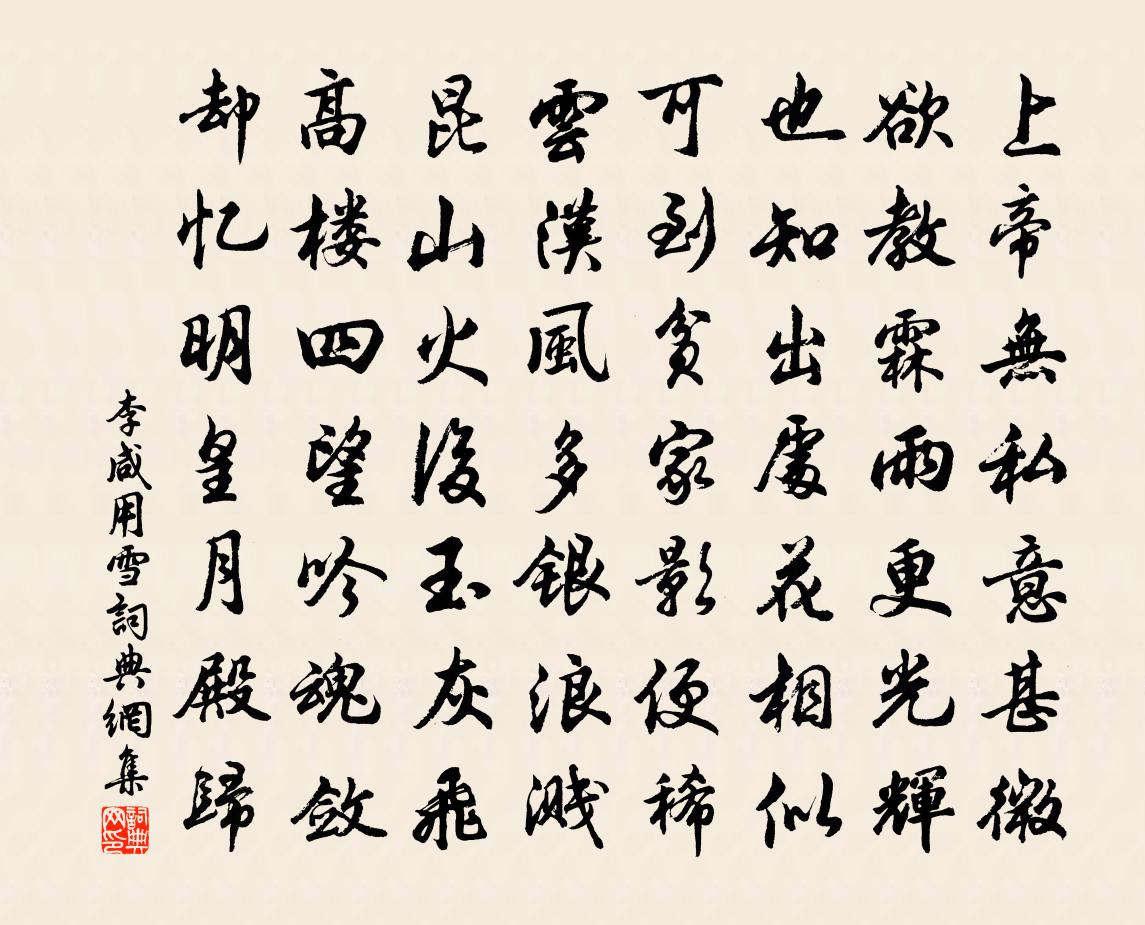 上帝無私意甚微
欲教霖雨更光輝
也知出處花相似
可到貧家影便稀
雲漢風多銀浪濺
昆山火後玉灰飛
高楼四望吟魂敛
却忆明皇月殿歸
李咸用雪詞典網集
詞典网印